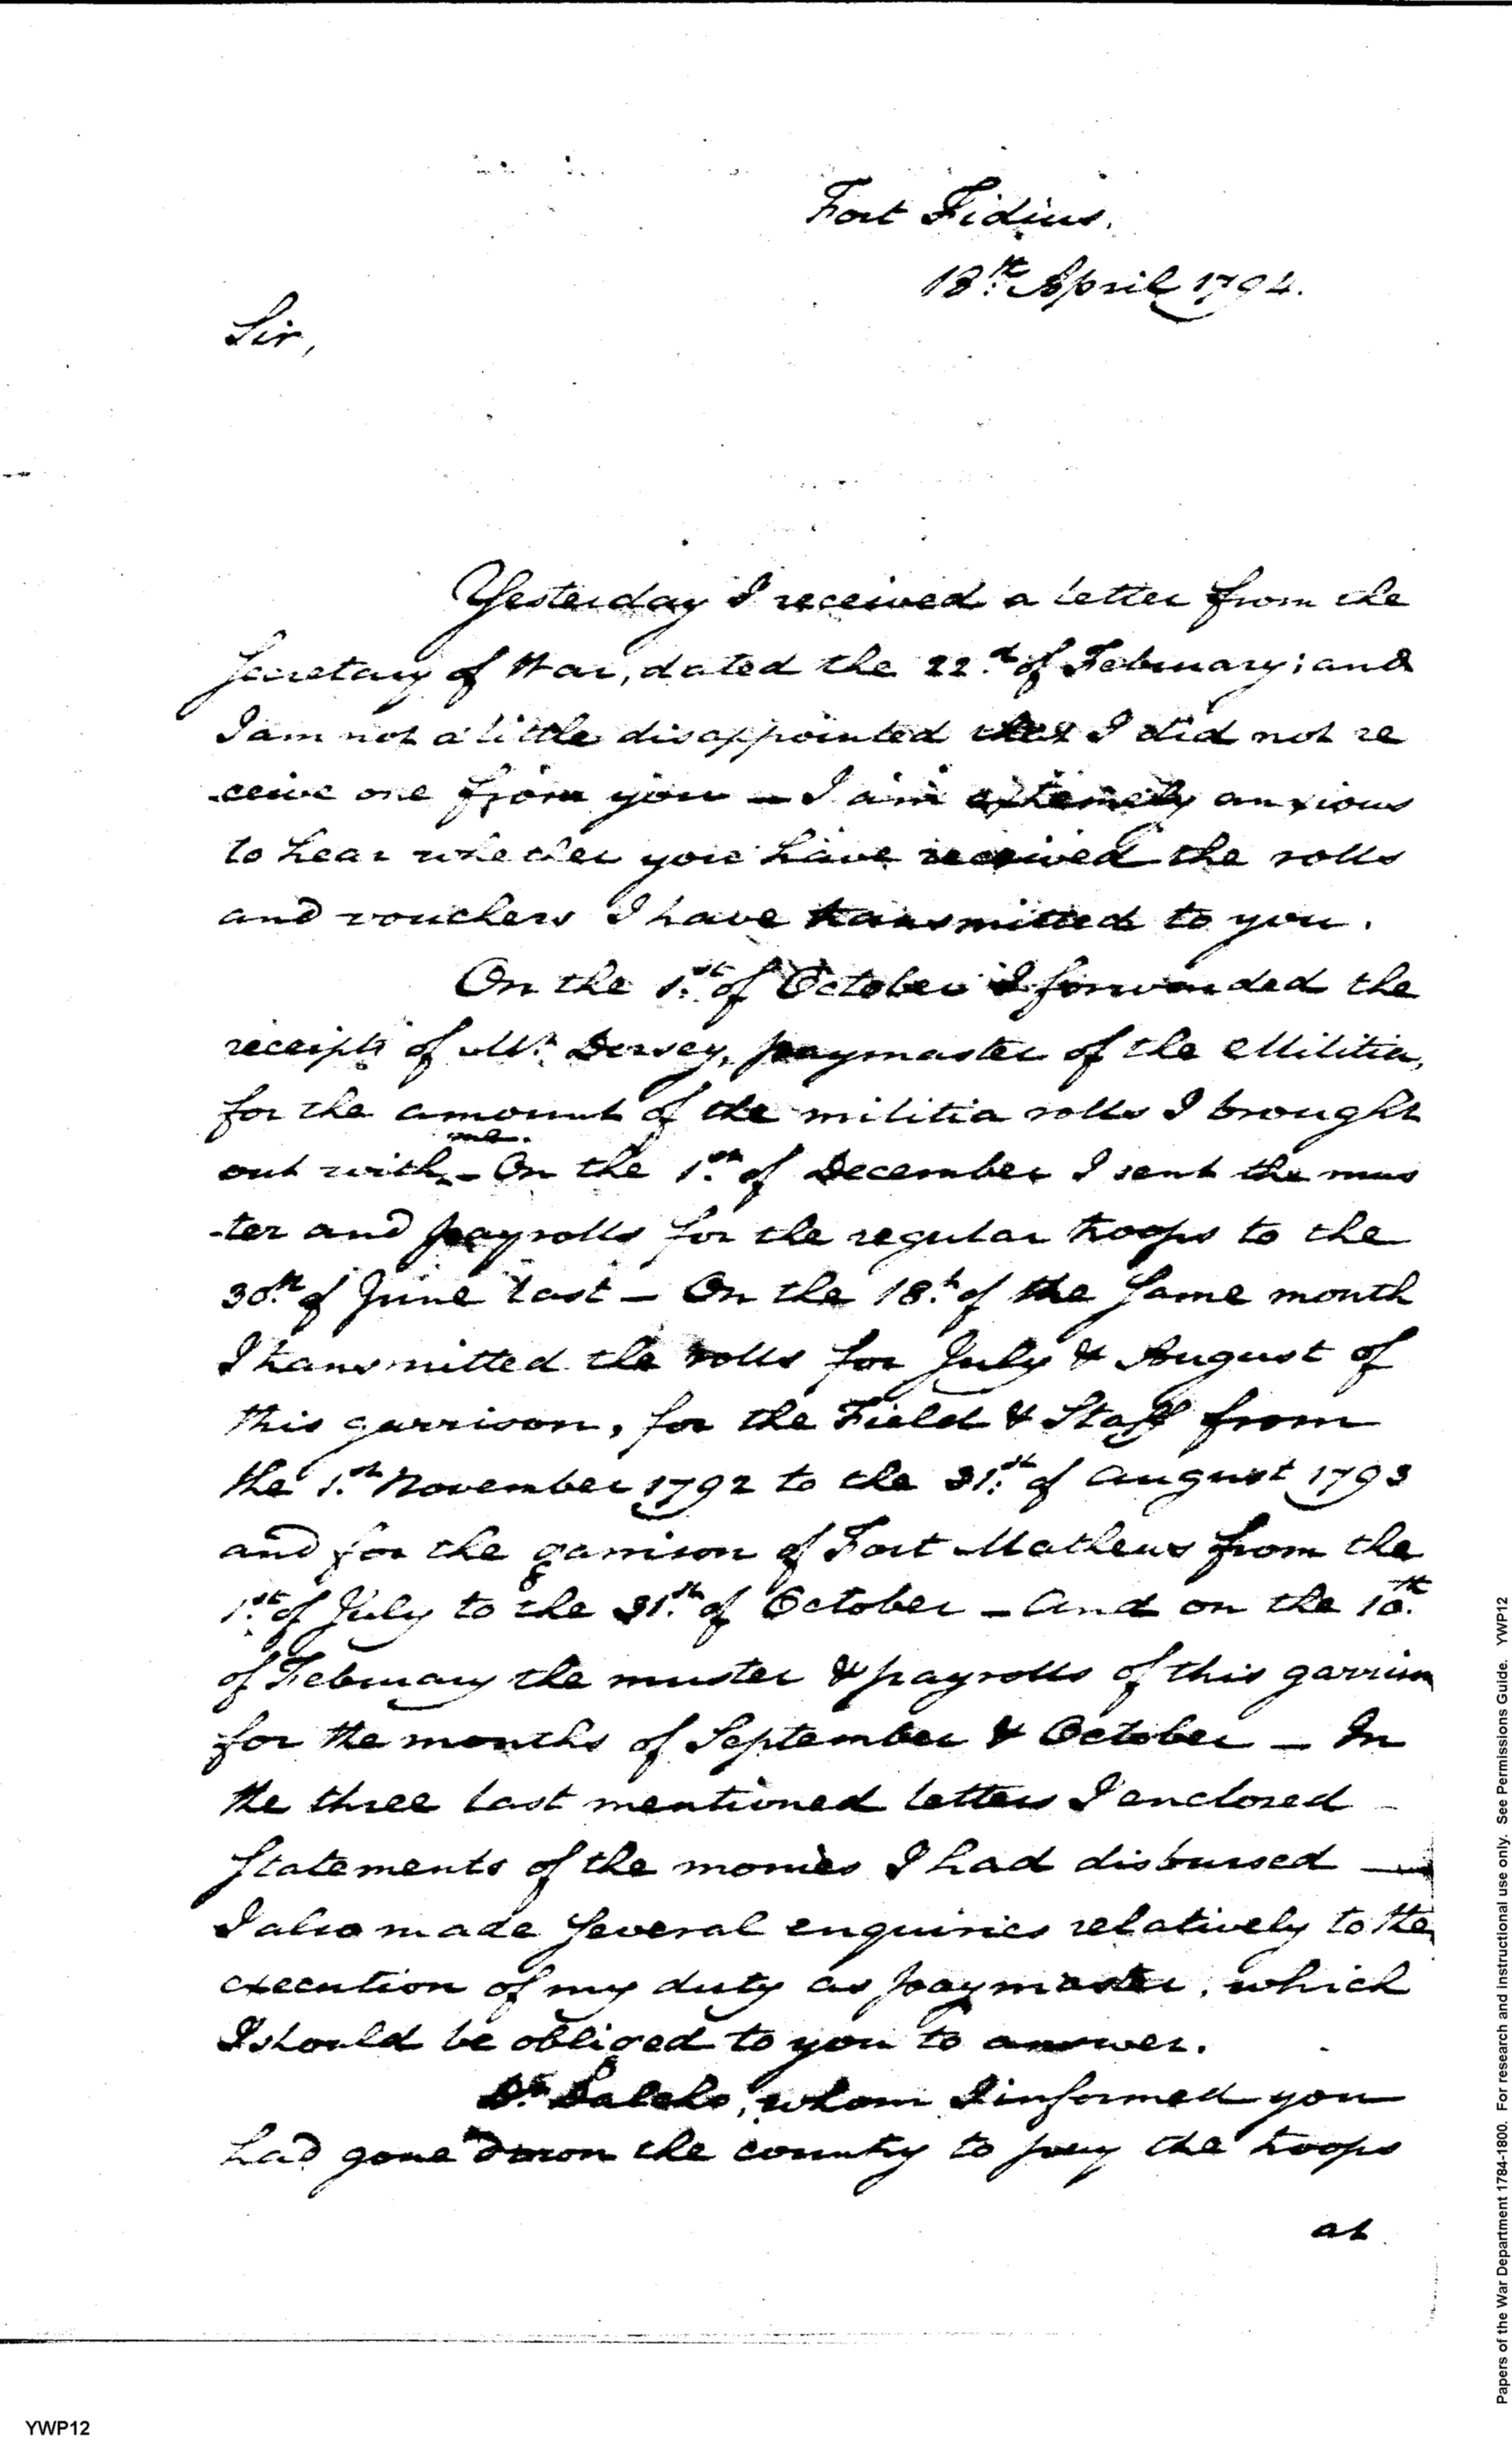 Fort Fidius.
18th April 1794.
Sir,
Yesterday I received a letter from the
Secretary of War, dated the 22d of February; and
I am not a little disappointed that I did not re
-ceive one from you - I am extremely anxious
to hear whether you have received the rolls
and vouchers I have transmitted to you.
On the 1st of October I forwarded the
receipts of Mr. Dorsey, paymaster of the Militia,
for the amount of the militia rolls I brought
out with me. - On the 1st of December I sent the mus
-ter and payrolls for the regular troops to the
30th of June last - On the 18th of the same month
I transmitted the rolls for July & August of
this garrison, for the Field & Staff from
the 1st November 1792 to the 31st of August 1793
and for the garrison of Fort Mathews from the
1st of July to the 31st of October - And on the 10th
of February the muster & payrolls of this garrison
for the months of September & October - In
the three last mentioned letters I enclosed
Statements of the monies I had disbursed -
I also made several enquiries relatively to the
execution of my duty as paymaster, which
I should be obliged to you to answer.
Dr. Dalcho, whom I informed you
had gone down the country to pay the troops
at
YWP12
Papers of the War Department 1784-1800. For research and instructional use only. See Permissions Guide. YWP12